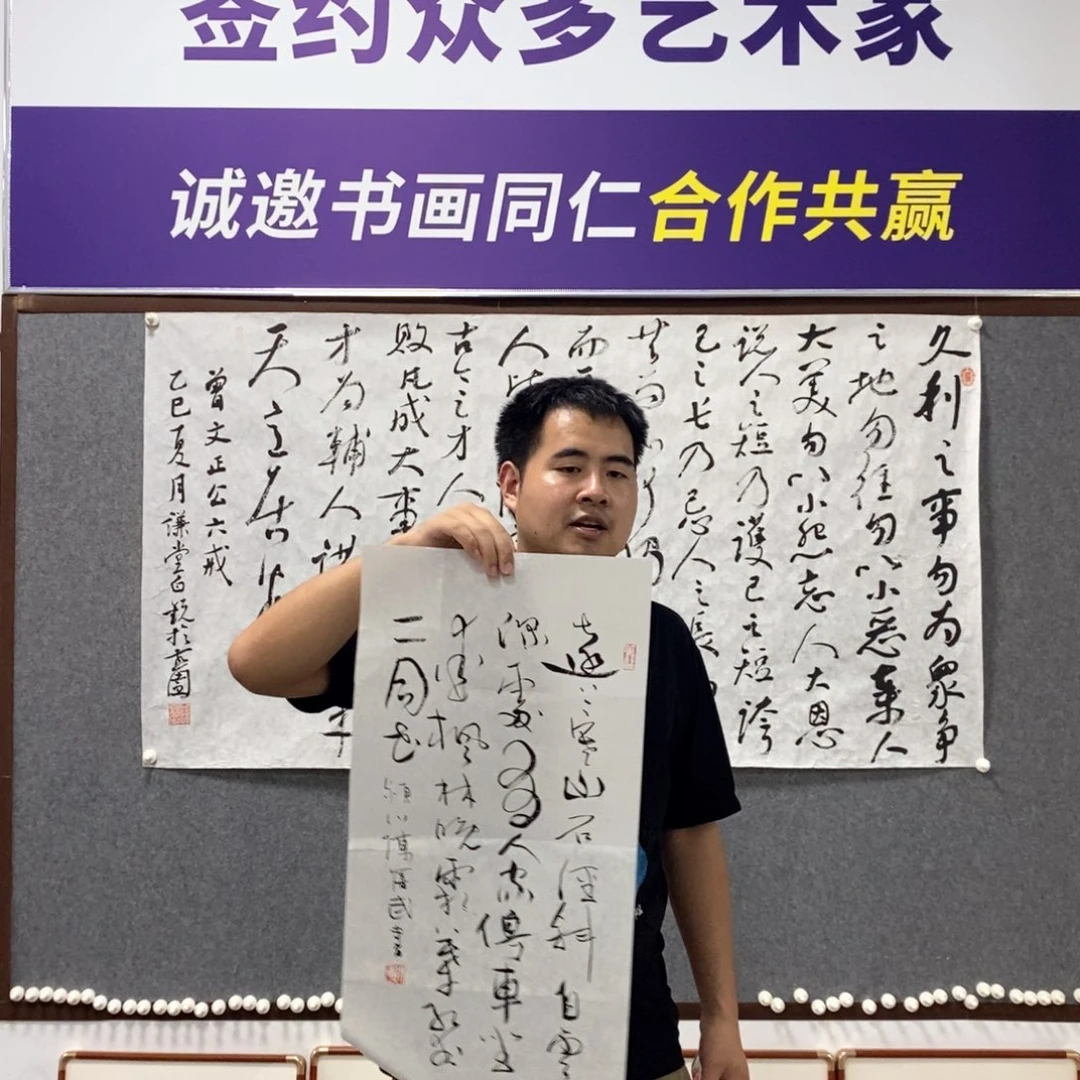 签约众多艺术家
诚邀书画同仁合作共赢
久利之事勿为眾争
之地勿往勿以小恶棄人
大美勿以小怨忘人大恩
说人之短乃護己之短誇
己之长乃忌人之长
而
人
古今之才人
败凡成大事
才为輔人讲
天之居
曾文正公六戒
乙巳夏月謙堂
遠上寒山石径斜白雲
深處有人家停車坐
愛枫林晚霜葉红於
二月花